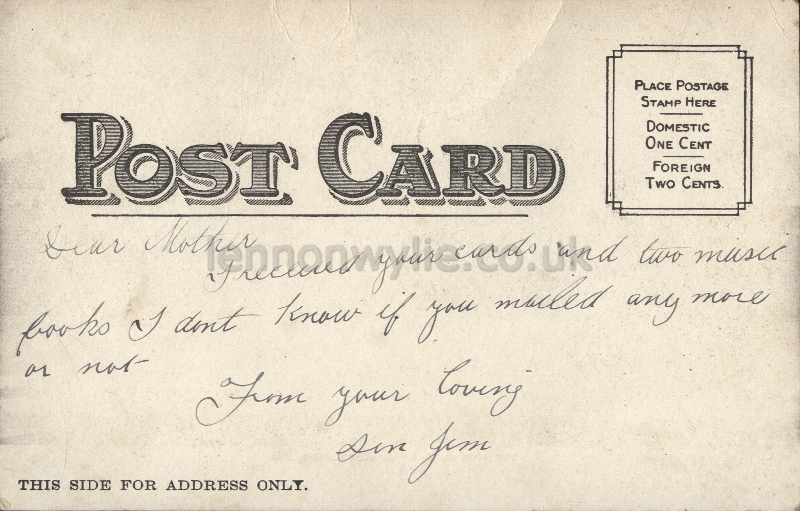 PLACE POSTAGE
STAMP HERE
DOMESTIC
ONE CENT
FOREIGN
TWO CENTS.
POST CARD
Dear Mother
lennonwylie.co.uk
I received your cards and two music
books I dont know if you mailed any more
or not
From your loving
Son Jim
THIS SIDE FOR ADDRESS ONLY.